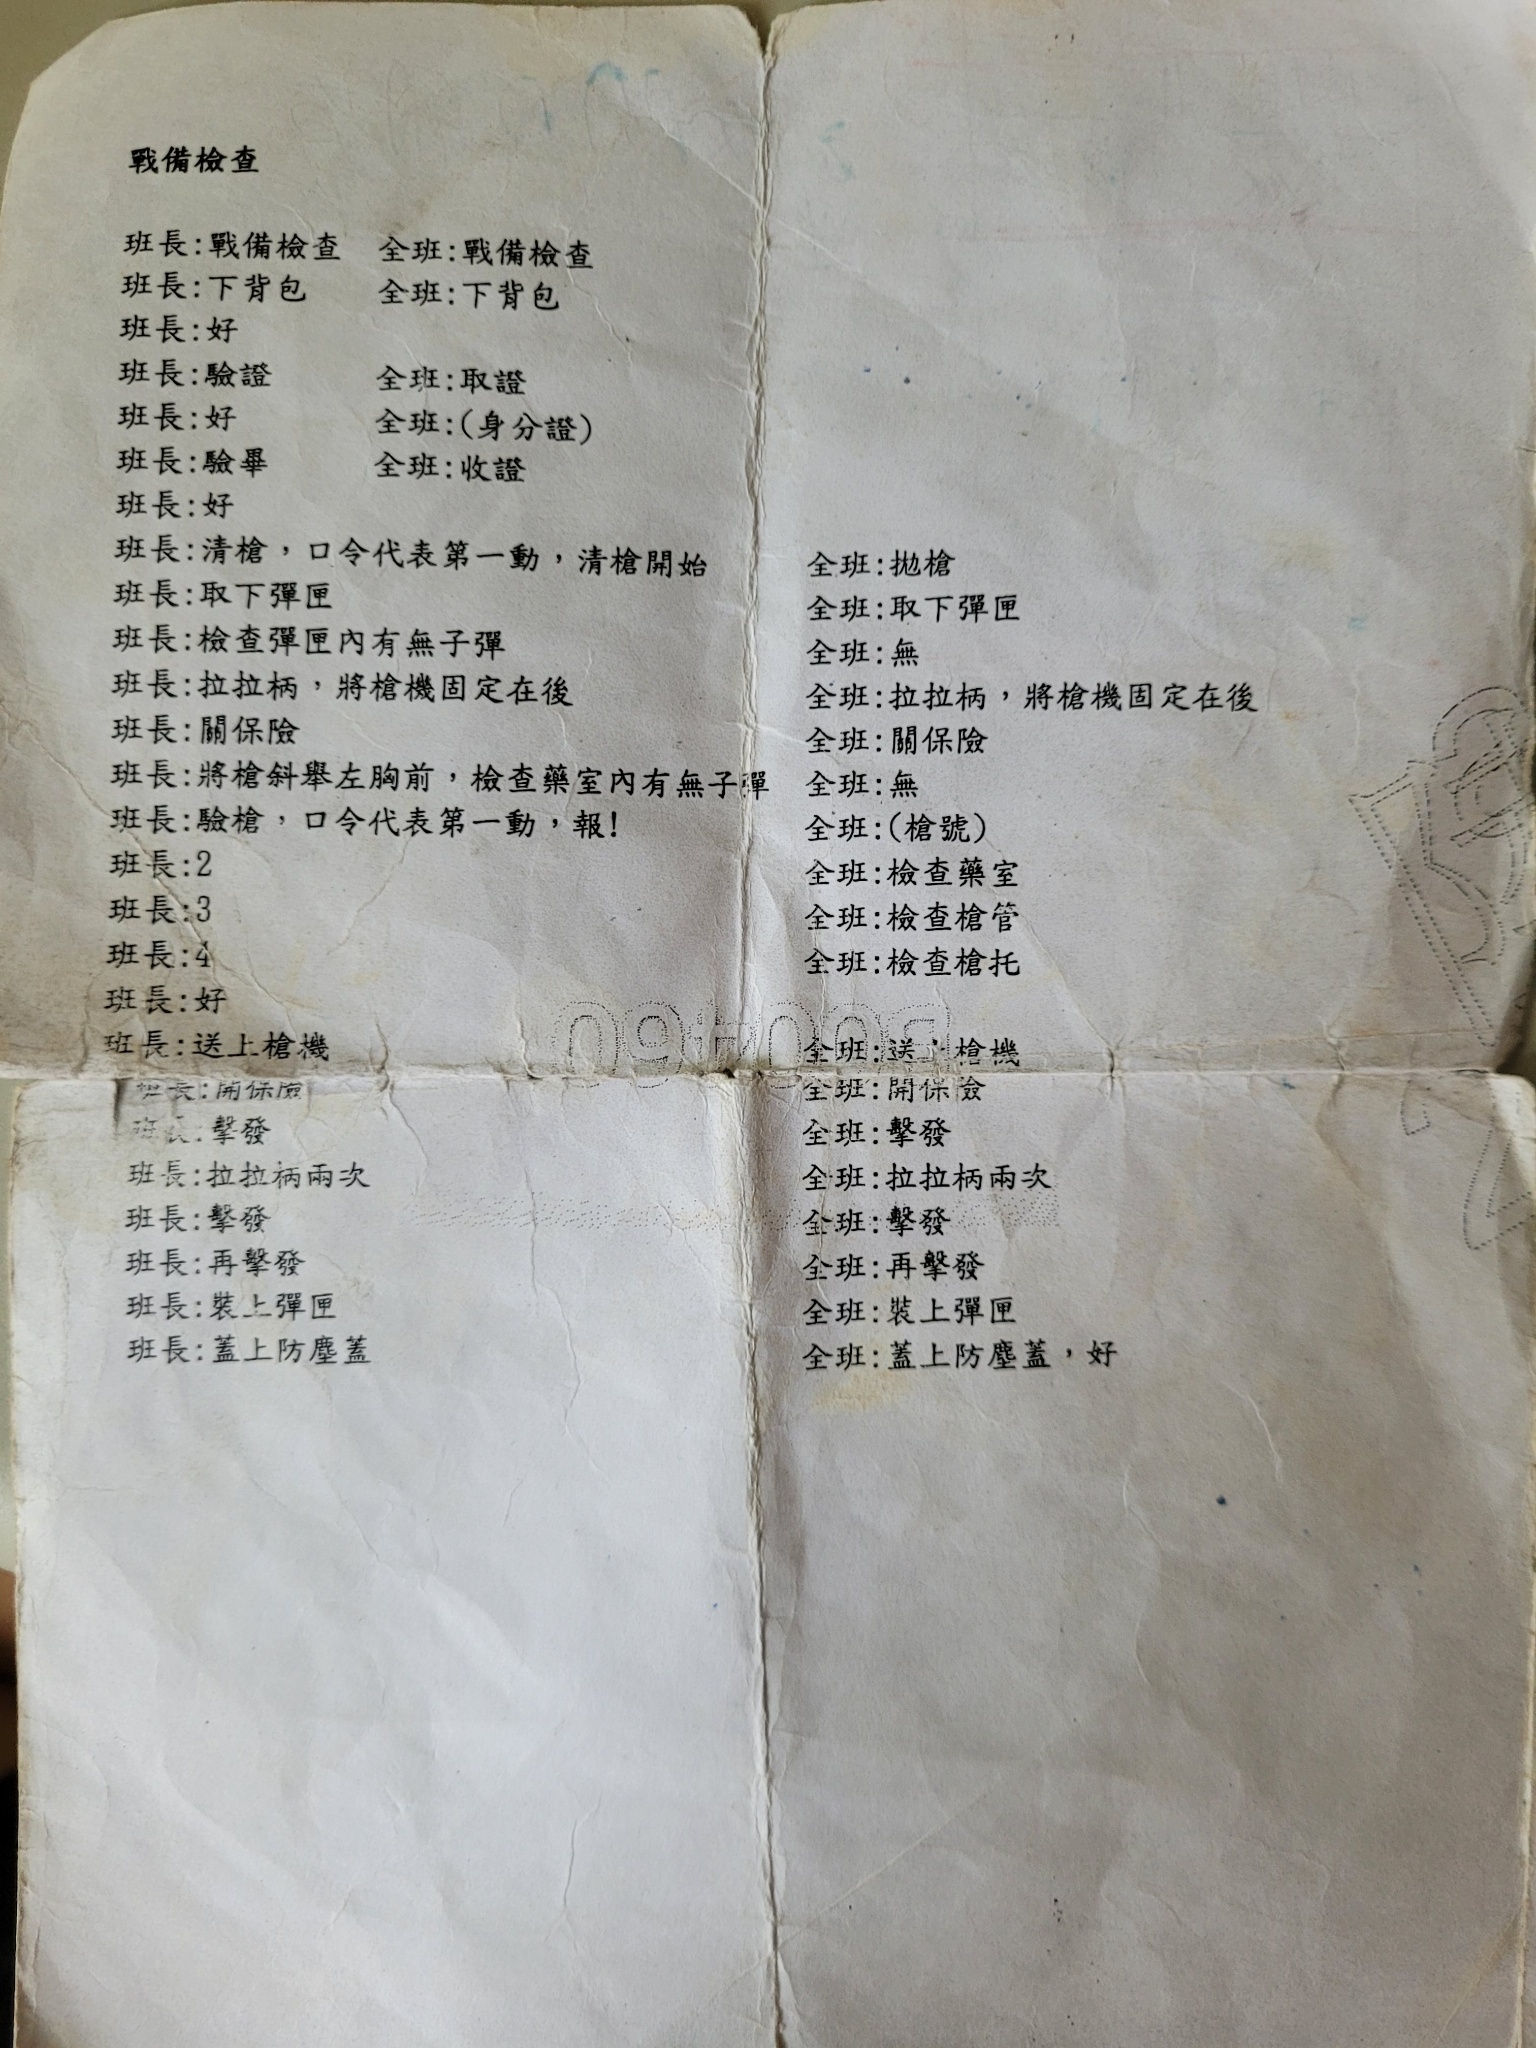 戰備檢查
班長:戰備檢查 全班:戰備檢查
班長:下背包 全班:下背包
班長:好
班長:驗證 全班:取證
班長:好 全班:(身分證)
班長:驗畢 全班:收證
班長:好
班長:清槍，口令代表第一動，清槍開始 全班:拋槍
班長:取下彈匣 全班:取下彈匣
班長:檢查彈匣內有無子彈 全班:無
班長:拉拉柄，將槍機固定在後 全班:拉拉柄，將槍機固定在後
班長:關保險 全班:關保險
班長:將槍斜舉左胸前，檢查藥室內有無子彈 全班:無
班長:驗槍，口令代表第一動，報! 全班:(槍號)
班長:2 全班:檢查藥室
班長:3 全班:檢查槍管
班長:4 全班:檢查槍托
班長:好
班長:送上槍機 全班:送上槍機
班長:開保險 全班:開保險
班長:擊發 全班:擊發
班長:拉拉柄兩次 全班:拉拉柄兩次
班長:擊發 全班:擊發
班長:再擊發 全班:再擊發
班長:裝上彈匣 全班:裝上彈匣
班長:蓋上防塵蓋 全班:蓋上防塵蓋，好